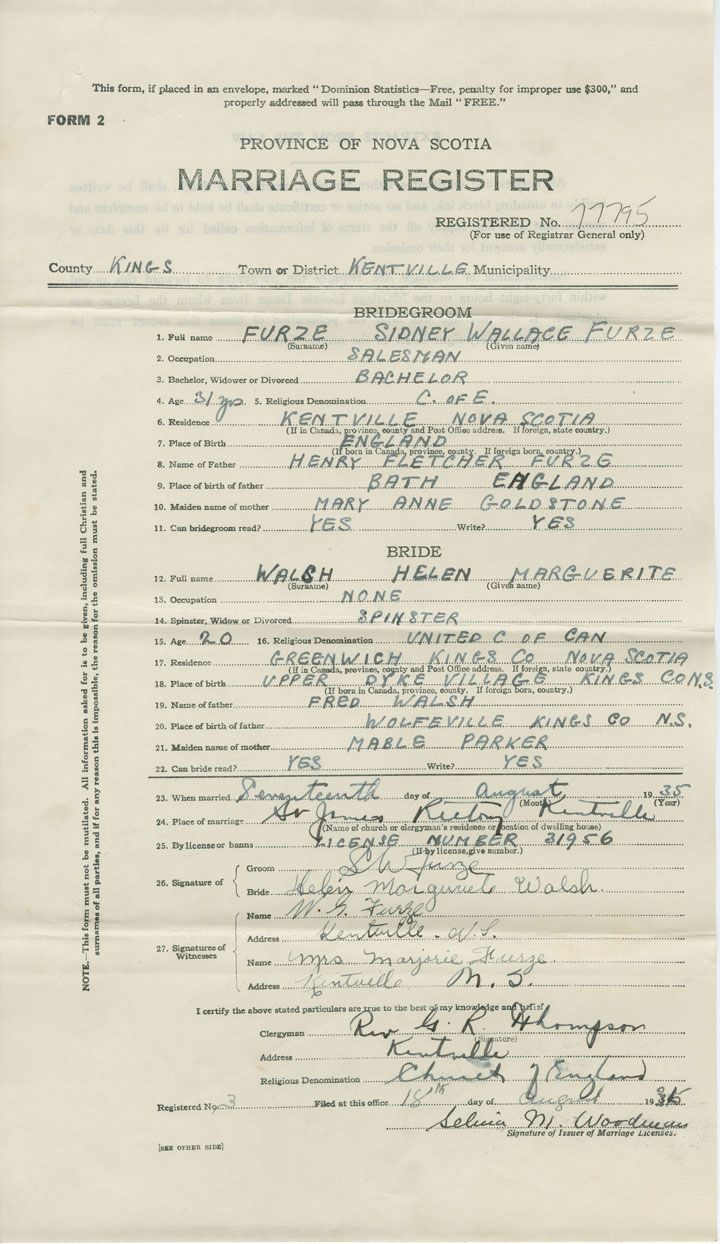 This form, if placed in an envelope, marked "Dominion Statistics—Free, penalty for improper use $300," and
properly addressed will pass through the Mail "FREE."
FORM 2
PROVINCE OF NOVA SCOTIA
MARRIAGE REGISTER
REGISTERED No. 77795
(For use of Registrar General only)
County KINGS Town or District KENTVILLE Municipality
BRIDEGROOM
1. Full name FURZE SIDNEY WALLACE FURZE
(Surname) (Given name)
2. Occupation SALESMAN
3. Bachelor, Widower or Divorced BACHELOR
4. Age 31 yrs 5. Religious Denomination C. OF E.
6. Residence KENTVILLE NOVA SCOTIA
(If in Canada, province, county and Post Office address. If foreign, state country.)
7. Place of Birth ENGLAND
(If born in Canada, province, county. If foreign born, country.)
8. Name of Father HENRY FLETCHER FURZE
9. Place of birth of father BATH ENGLAND
10. Maiden name of mother MARY ANNE GOLDSTONE
11. Can bridegroom read? YES Write? YES
BRIDE
12. Full name WALSH HELEN MARGUERITE
(Surname) (Given name)
13. Occupation NONE
14. Spinster, Widow or Divorced SPINSTER
15. Age 20 16. Religious Denomination UNITED C OF CAN
17. Residence GREENWICH KINGS CO NOVA SCOTIA
(If in Canada, province, county and Post Office address. If foreign, state country.)
18. Place of birth UPPER DYKE VILLAGE KINGS CO N.S.
(If born in Canada, province, county. If foreign born, country.)
19. Name of father FRED WALSH
20. Place of birth of father WOLFEVILLE KINGS CO N.S.
21. Maiden name of mother MABLE PARKER
22. Can bride read? YES Write? YES
23. When married Seventeenth day of August 1935
(Month) (Year)
24. Place of marriage St James Rectory Kentville
(Name of church or clergyman's residence or location of dwelling house)
25. By license or banns LICENSE NUMBER 31956
(If by license, give number.)
26. Signature of Groom S W Furze
Bride Helen Marguerite Walsh.
27. Signatures of Witnesses
Name W. G. Furze
Address Kentville. N.S.
Name Mrs Marjorie Furze.
Address Kentville N. S.
I certify the above stated particulars are true to the best of my knowledge and belief
Clergyman Rev G. R. Thompson
(Signature)
Address Kentville
Religious Denomination Church of England
Registered No. 3 Filed at this office 18th day of August 1935
Selina M. Woodman
Signature of Issuer of Marriage Licenses.
[SEE OTHER SIDE]
NOTE.—This form must not be mutilated. All information asked for is to be given, including full Christian and
surnames of all parties, and if for any reason this is impossible, the reason for the omission must be stated.